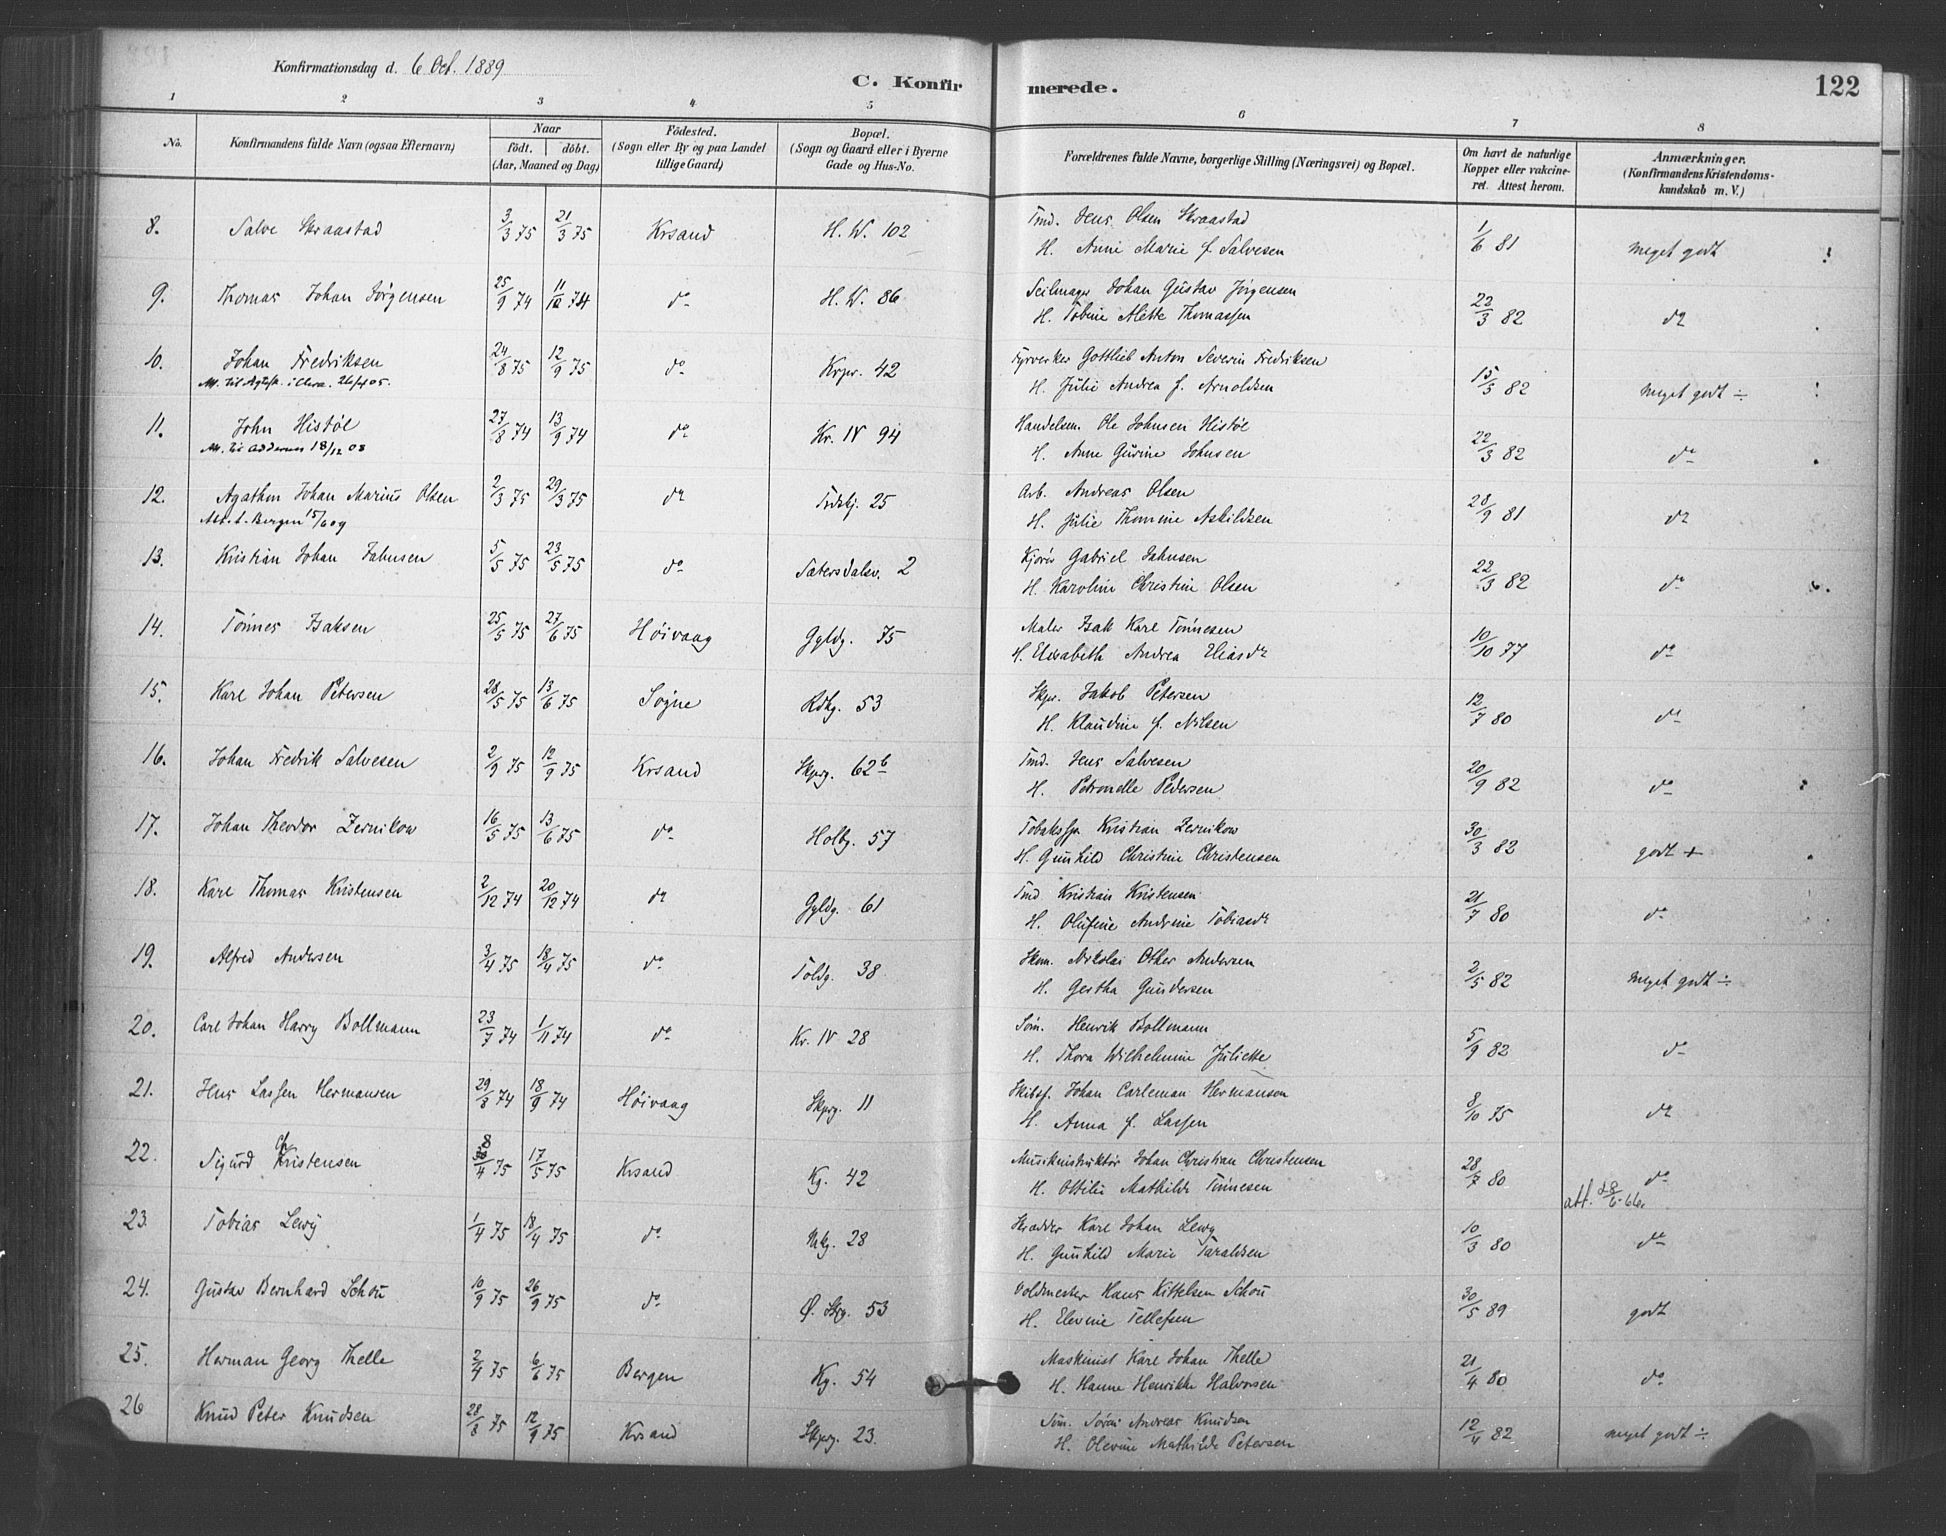 Konfirmationsdag d. 6 Oct. 1889
C. Konfirmerede.
122
1 2 3 4 5 6 7 8
No.
Konfirmandens fulde Navn (ogsaa Efternavn)
Naar
født. døbt.
(Aar, Maaned og Dag)
Födested.
(Sogn eller By og paa Landet tillige Gaard)
Bopæl.
(Sogn og Gaard eller i Byerne Gade og Hus-No.
Forældrenes fulde Navne, borgerlige Stilling (Næringsvei) og Bopæl.
Om havt de naturlige Kopper eller vakcineret. Attest herom.
Anmærkninger.
(Konfirmandens Kristendomskundskab m. V.)
8. Salve Skraastad 3/3 75 21/3 75 Krsand H. W. 102 Tmd. Jens Olsen Skraastad 1/6 81 meget godt !
H. Anne Marie f. Salvesen
9. Thomas Johan Jörgensen 25/9 74 do H. W. 86 Seilmager Johan Gustav Jörgensen 22/3 82 do
H. Tobine Alette Thomassen
10. Johan Fredriksen 24/8 75 12/9 75 do 42 Fyrverker Gottlieb Anton Severin Fredriksen 15/5 82 meget godt ÷
H. Julie Andrea f. Arnoldsen
11. John Histöl 27/8 74 13/9 74 do Kr. IV 94 Handelsm. Ole Johnsen Histöl 22/3 82 do
18/12 08
H. Anne Gurine Johnsen
12. Agathon Johan Marius Olsen 2/3 75 29/3 75 do 25 Arb. Andreas Olsen 28/9 81 do
Att. t. Bergen 15/6 09
H. Julie Thomine Askildsen
13. Kristian Johan Jahnsen 5/5 75 23/5 75 do Sætersdalsv. 2 Gabriel Jahnsen 22/3 82 do
H. Karoline Christine Olsen
14. Tönnes Isaksen 25/5 75 27/6 75 Höivaag Gyldg. 75 Maler Isak Karl Tönnesen 10/10 77 do
H. Elisabeth Andrea Eliasdr
15. Karl Johan Petersen 28/5 75 13/6 75 Søgne Rdhg. 53 Skpr. Jakob Petersen 12/7 80 do
H. Klaudine f. Nilsen
16. Johan Fredrik Salvesen 2/9 75 12/9 75 Krsand Skprg. 62b Tmd. Jens Salvesen 20/9 82 do
H. Petronelle Pedersen
17. Johan Theodor Zernikow 16/5 75 13/6 75 do Holbg. 57 Tobakssp. Kristian Zernikow 30/3 82 godt +
H. Gunhild Christine Christensen
18. Karl Thomas Kristensen 2/12 74 20/12 74 do Gyldg. 61 Tmd Kristian Kristensen 21/7 80 do
H. Olufine Andrine Tobiasdr
19. Alfred Andersen 3/4 75 18/4 75 do Toldg. 38 Skom. Nikolai Other Andersen 2/5 82 meget godt ÷
H. Gertha Gundersen
20. Carl Johan Harry Bollmann 23/7 74 1/11 74 do Kr. IV 28 Söm. Henrik Bollmann 5/9 82 do
H. Thora Wilhelmine Juliette
21. Jens Lassen Hermansen 29/8 74 18/9 74 Höivaag Skprg. 11 Skibsf. Johan Carleman Hermanson 8/10 75 do
H. Anna f. Lassen
22. Sigurd Christensen 4 75 17/5 75 Krsand Kg. 42 Musikinstruktör Johan Christian Christensen 28/7 80 do
H. Ottilie Mathilde Tönnesen
att. 28/6-66
23. Tobias Lewy 1/4 75 18/4 75 do Mkg. 28 Skrædder Karl Johan Lewy 10/3 80 do
H. Gunhild Marie Taraldsen
24. Gustav Bernhard Schou 10/9 75 26/9 75 do Ø. Strg. 53 Voldmester Hans Kittelsen Schou 30/5 89 godt
H. Elevine Tellefsen
25. Herman Georg Thelle 2/4 75 6/6 75 Bergen Kg. 54 Maskinist Karl Johan Thelle 21/4 80 do
H. Hanne Henrikke Halvorsen
26 Knud Peter Knudsen 28/8 75 12/9 75 Krsand Skprg. 23. Söm. Sören Andreas Knudsen 12/4 82 meget godt ÷
H. Olevine Mathilde Petersen